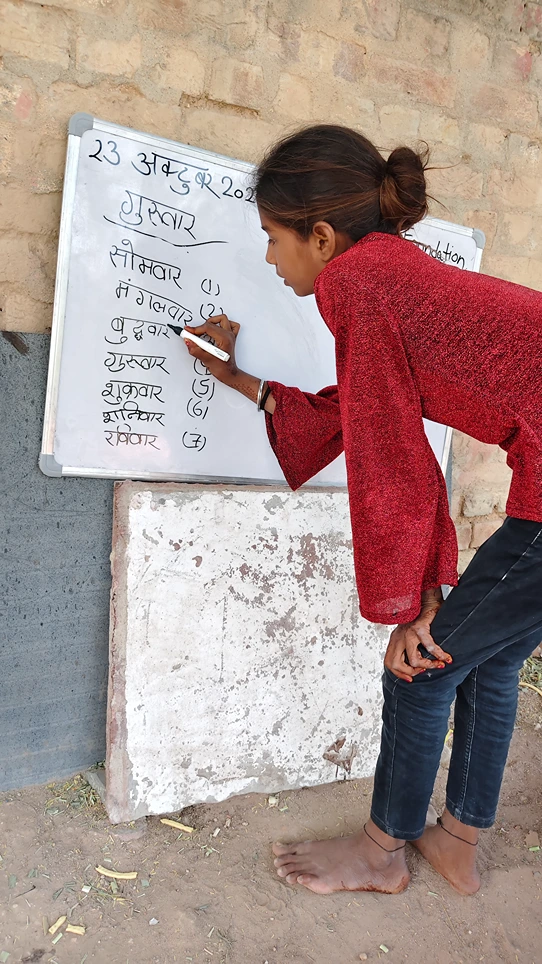 23 अक्टुबर 202
गुरुवार
सोमवार (1)
मंगलवार (2)
बुद्धवार
गुरुवार
शुक्रवार (5)
शनिवार (6)
रविवार (7)
ndation